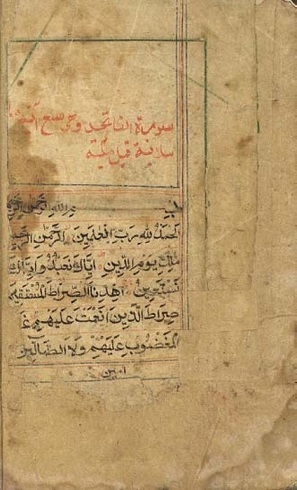 سورة الفاتحة وهي سبع
قيل مكية
بسم الله الرحمن الرحيم
الحمد لله رب العلمين الرحمن الرحيم
ملك يوم الدين اياك نعبد واياك
نستعين اهدنا الصراط المستقيم
صراط الذين انعمت عليهم
المغضوب عليهم ولا الضالين
امين